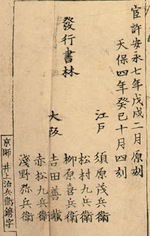 官許安永七年戊戌二月原刻
天保四年癸巳十月四刻
發行書林
江戸
須原茂兵衛
松村九兵衛
大阪
柳原喜兵衛
吉田善藏
赤松九兵衛
淺野弥兵衛
京師 井上治兵衛鐫字